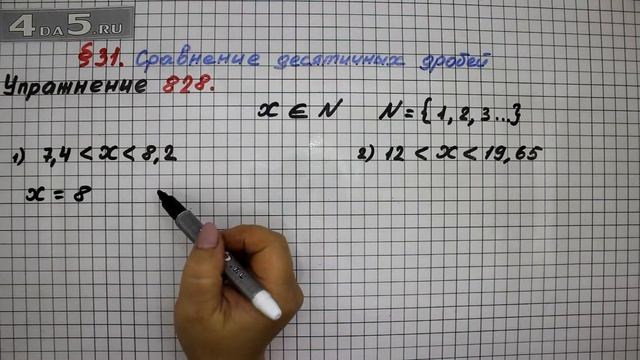 4DA5.RU
§31. Сравнение десятичных дробей
Упражнение 828.
x ∈ N N = {1, 2, 3...}
1) 7,4 < x < 8,2 2) 12 < x < 19,65
x = 8